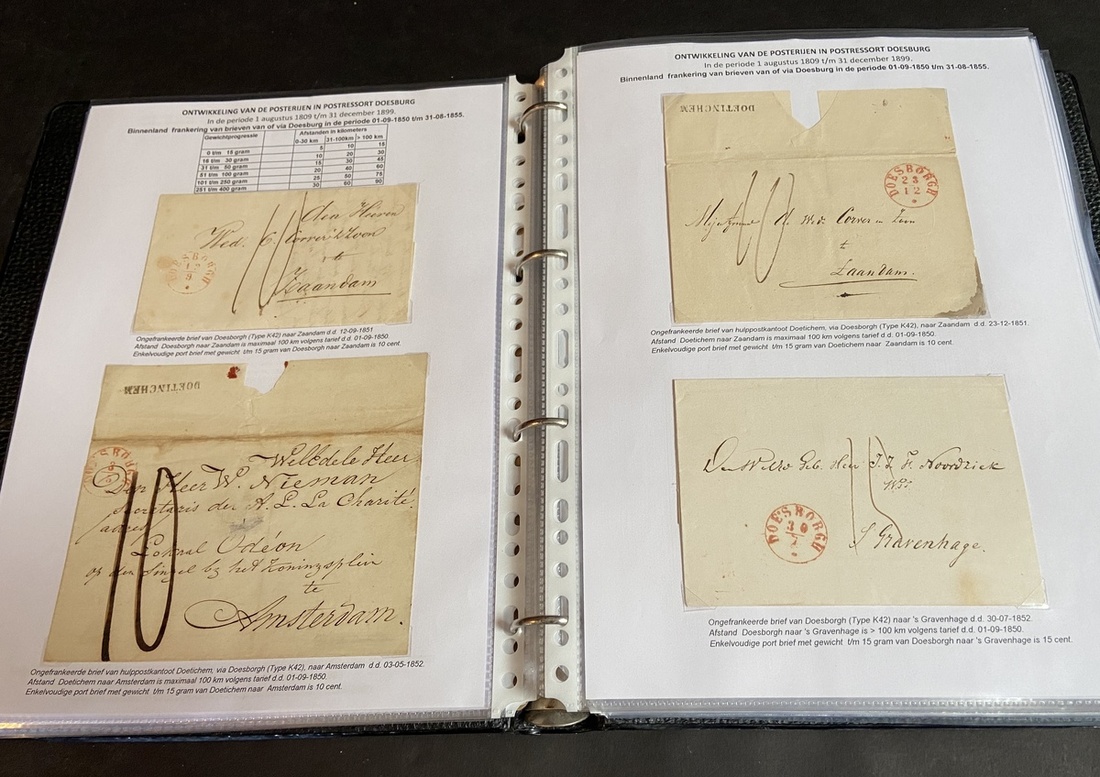 ONTWIKKELING VAN DE POSTERIJEN IN POSTRESSORT DOESBURG
In de periode 1 augustus 1809 t/m 31 december 1899.
Binnenland frankering van brieven van of via Doesburg in de periode 01-09-1850 t/m 31-08-1855.
Gewichtprogressie Afstanden in kilometers
0-30 km 31-100km > 100 km
0 t/m 15 gram 5 10 15
16 t/m 30 gram 10 20 30
31 t/m 50 gram 15 30 45
51 t/m 100 gram 20 40 60
101 t/m 250 gram 25 50 75
251 t/m 400 gram 30 60 90
den Heeren
Wed. C. Corver & Zoon
te
Zaandam
DOESBORGH
12
9
10
Ongefrankeerde brief van Doesborgh (Type K42) naar Zaandam d.d. 12-09-1851
Afstand Doesborgh naar Zaandam is maximaal 100 km volgens tarief d.d. 01-09-1850.
Enkelvoudige port brief met gewicht t/m 15 gram van Doesborgh naar Zaandam is 10 cent.
DOETINCHEM
DOESBORGH
Weledele Heer
Den Heer W. Nieman
Secretaris der A. L. La Charité
adres
Lokaal Odéon
op den Singel bij het Koningsplein
te
Amsterdam.
10
Ongefrankeerde brief van hulppostkantoot Doetichem, via Doesborgh (Type K42), naar Amsterdam d.d. 03-05-1852.
Afstand Doetichem naar Amsterdam is maximaal 100 km volgens tarief d.d. 01-09-1850.
Enkelvoudige port brief met gewicht t/m 15 gram van Doetichem naar Amsterdam is 10 cent.
ONTWIKKELING VAN DE POSTERIJEN IN POSTRESSORT DOESBURG
In de periode 1 augustus 1809 t/m 31 december 1899.
Binnenland frankering van brieven van of via Doesburg in de periode 01-09-1850 t/m 31-08-1855.
DOETINCHEM
DOESBORGH
23
12
10
d. Wed. Corver en Zoon
te
Zaandam.
Ongefrankeerde brief van hulppostkantoot Doetichem, via Doesborgh (Type K42), naar Zaandam d.d. 23-12-1851.
Afstand Doetichem naar Zaandam is maximaal 100 km volgens tarief d.d. 01-09-1850.
Enkelvoudige port brief met gewicht t/m 15 gram van Doetichem naar Zaandam is 10 cent.
De Heer J. J. F. Noordziek
15
S Gravenhage.
DOESBORGH
30
7
Ongefrankeerde brief van Doesborgh (Type K42) naar 's Gravenhage d.d. 30-07-1852.
Afstand Doesborgh naar 's Gravenhage is > 100 km volgens tarief d.d. 01-09-1850.
Enkelvoudige port brief met gewicht t/m 15 gram van Doesborgh naar 's Gravenhage is 15 cent.